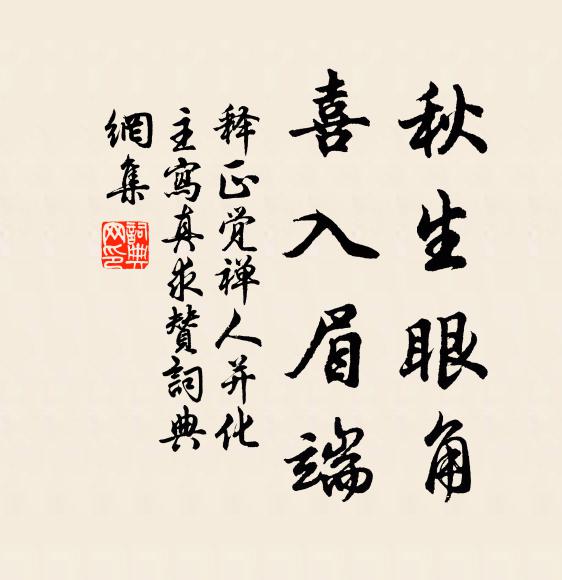 秋生眼角
喜入眉端
释正觉禅人并化
主寫真求贊詞典
網集
詞典网印